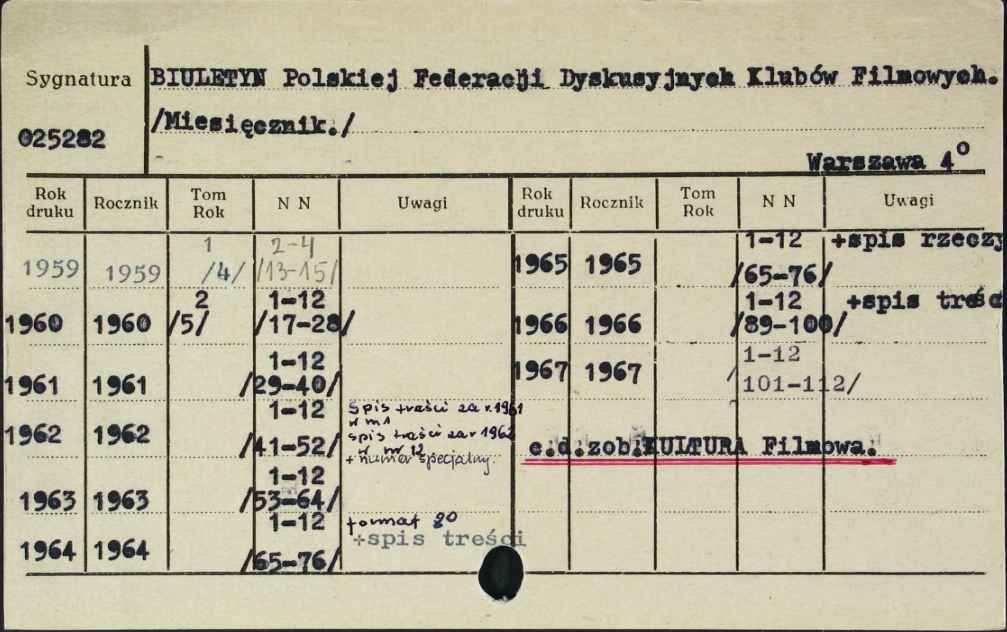 Sygnatura BIULETYN Polskiej Federacji Dyskusyjnych Klubów Filmowych.
025282 /Miesięcznik./
Warszawa 4°
Rok druku Rocznik Tom Rok N N Uwagi Rok druku Rocznik Tom Rok N N Uwagi
1 2-4
1959 1959 /4/ /13-15/
2 1-12
1960 1960 /5/ /17-28/
1-12
1961 1961 /29-40/
1-12 Spis treści za r. 1961
w nr 1
1962 1962 /41-52/ spis treści za r 1962
w nr 12
+ numer specjalny.
1-12
1963 1963 /53-64/
1-12 format 80
+spis treści
1964 1964 /65-76/
1-12 +spis rzeczy
1965 1965 /65-76/
1-12 +spis treśc
1966 1966 /89-100/
1-12
1967 1967 / 101-112/
c.d.zob.KULTURA Filmowa.